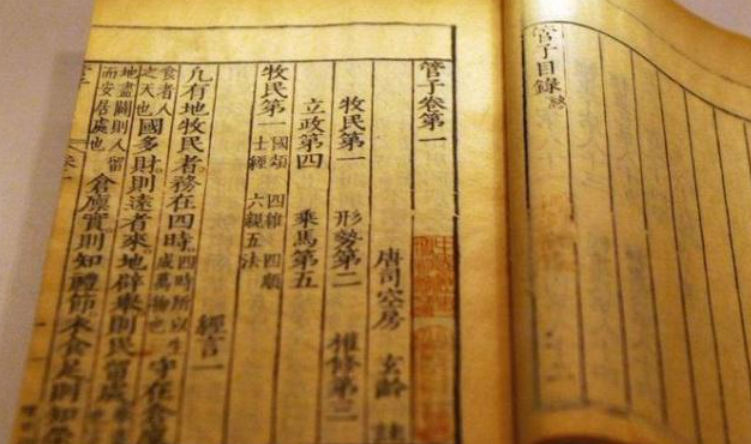 管子目錄終
管子卷第一
唐司空房 玄齡 註
牧民第一 形勢第二 權修第三
立政第四 乘馬第五
牧民第一 國頌 四維 四順 士經 六親五法
經言一
凡有地牧民者務在四時四時所以生成萬物也守在倉廩
食者人之天也國多財則遠者來地辟舉則民留處
地盡闢則人留而安居處也倉廩實則知禮節衣食足則知榮